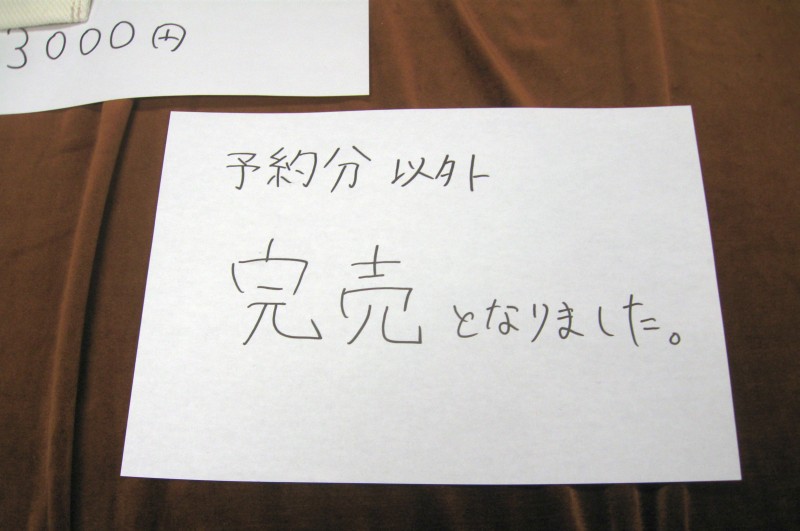 3000円
予約分 以外
完売 となりました。